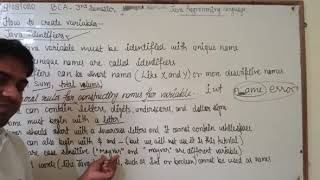 BCA. 3rd Semester Java Programming Language
How to create variable
Java identifiers
variable must be identified with unique name
unique names are called identifiers
can be short name (like x and y) or more descriptive names
sum, total volume)
rules for constructing names for variable: int name; error
can contain letters, digits, underscores, and dollar sign
must begin with a letter
should start with a lowercase letter and it cannot contain whitespace
can also begin with $ and _ (but we will not use it in this tutorial)
are case sensitive ("myvar" and "myvar" are different variable)
words (like Java such as int or boolean) cannot be used as names